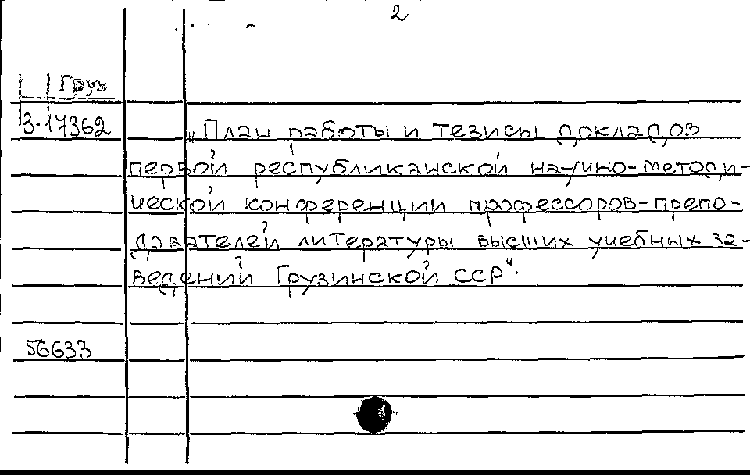 2
Груз
3-17362
„План работы и тезисы докладов
первой республиканской научно-методи-
ческой конференции профессоров-препо-
давателей литературы высших учебных за-
ведений Грузинской ССР“.
56633